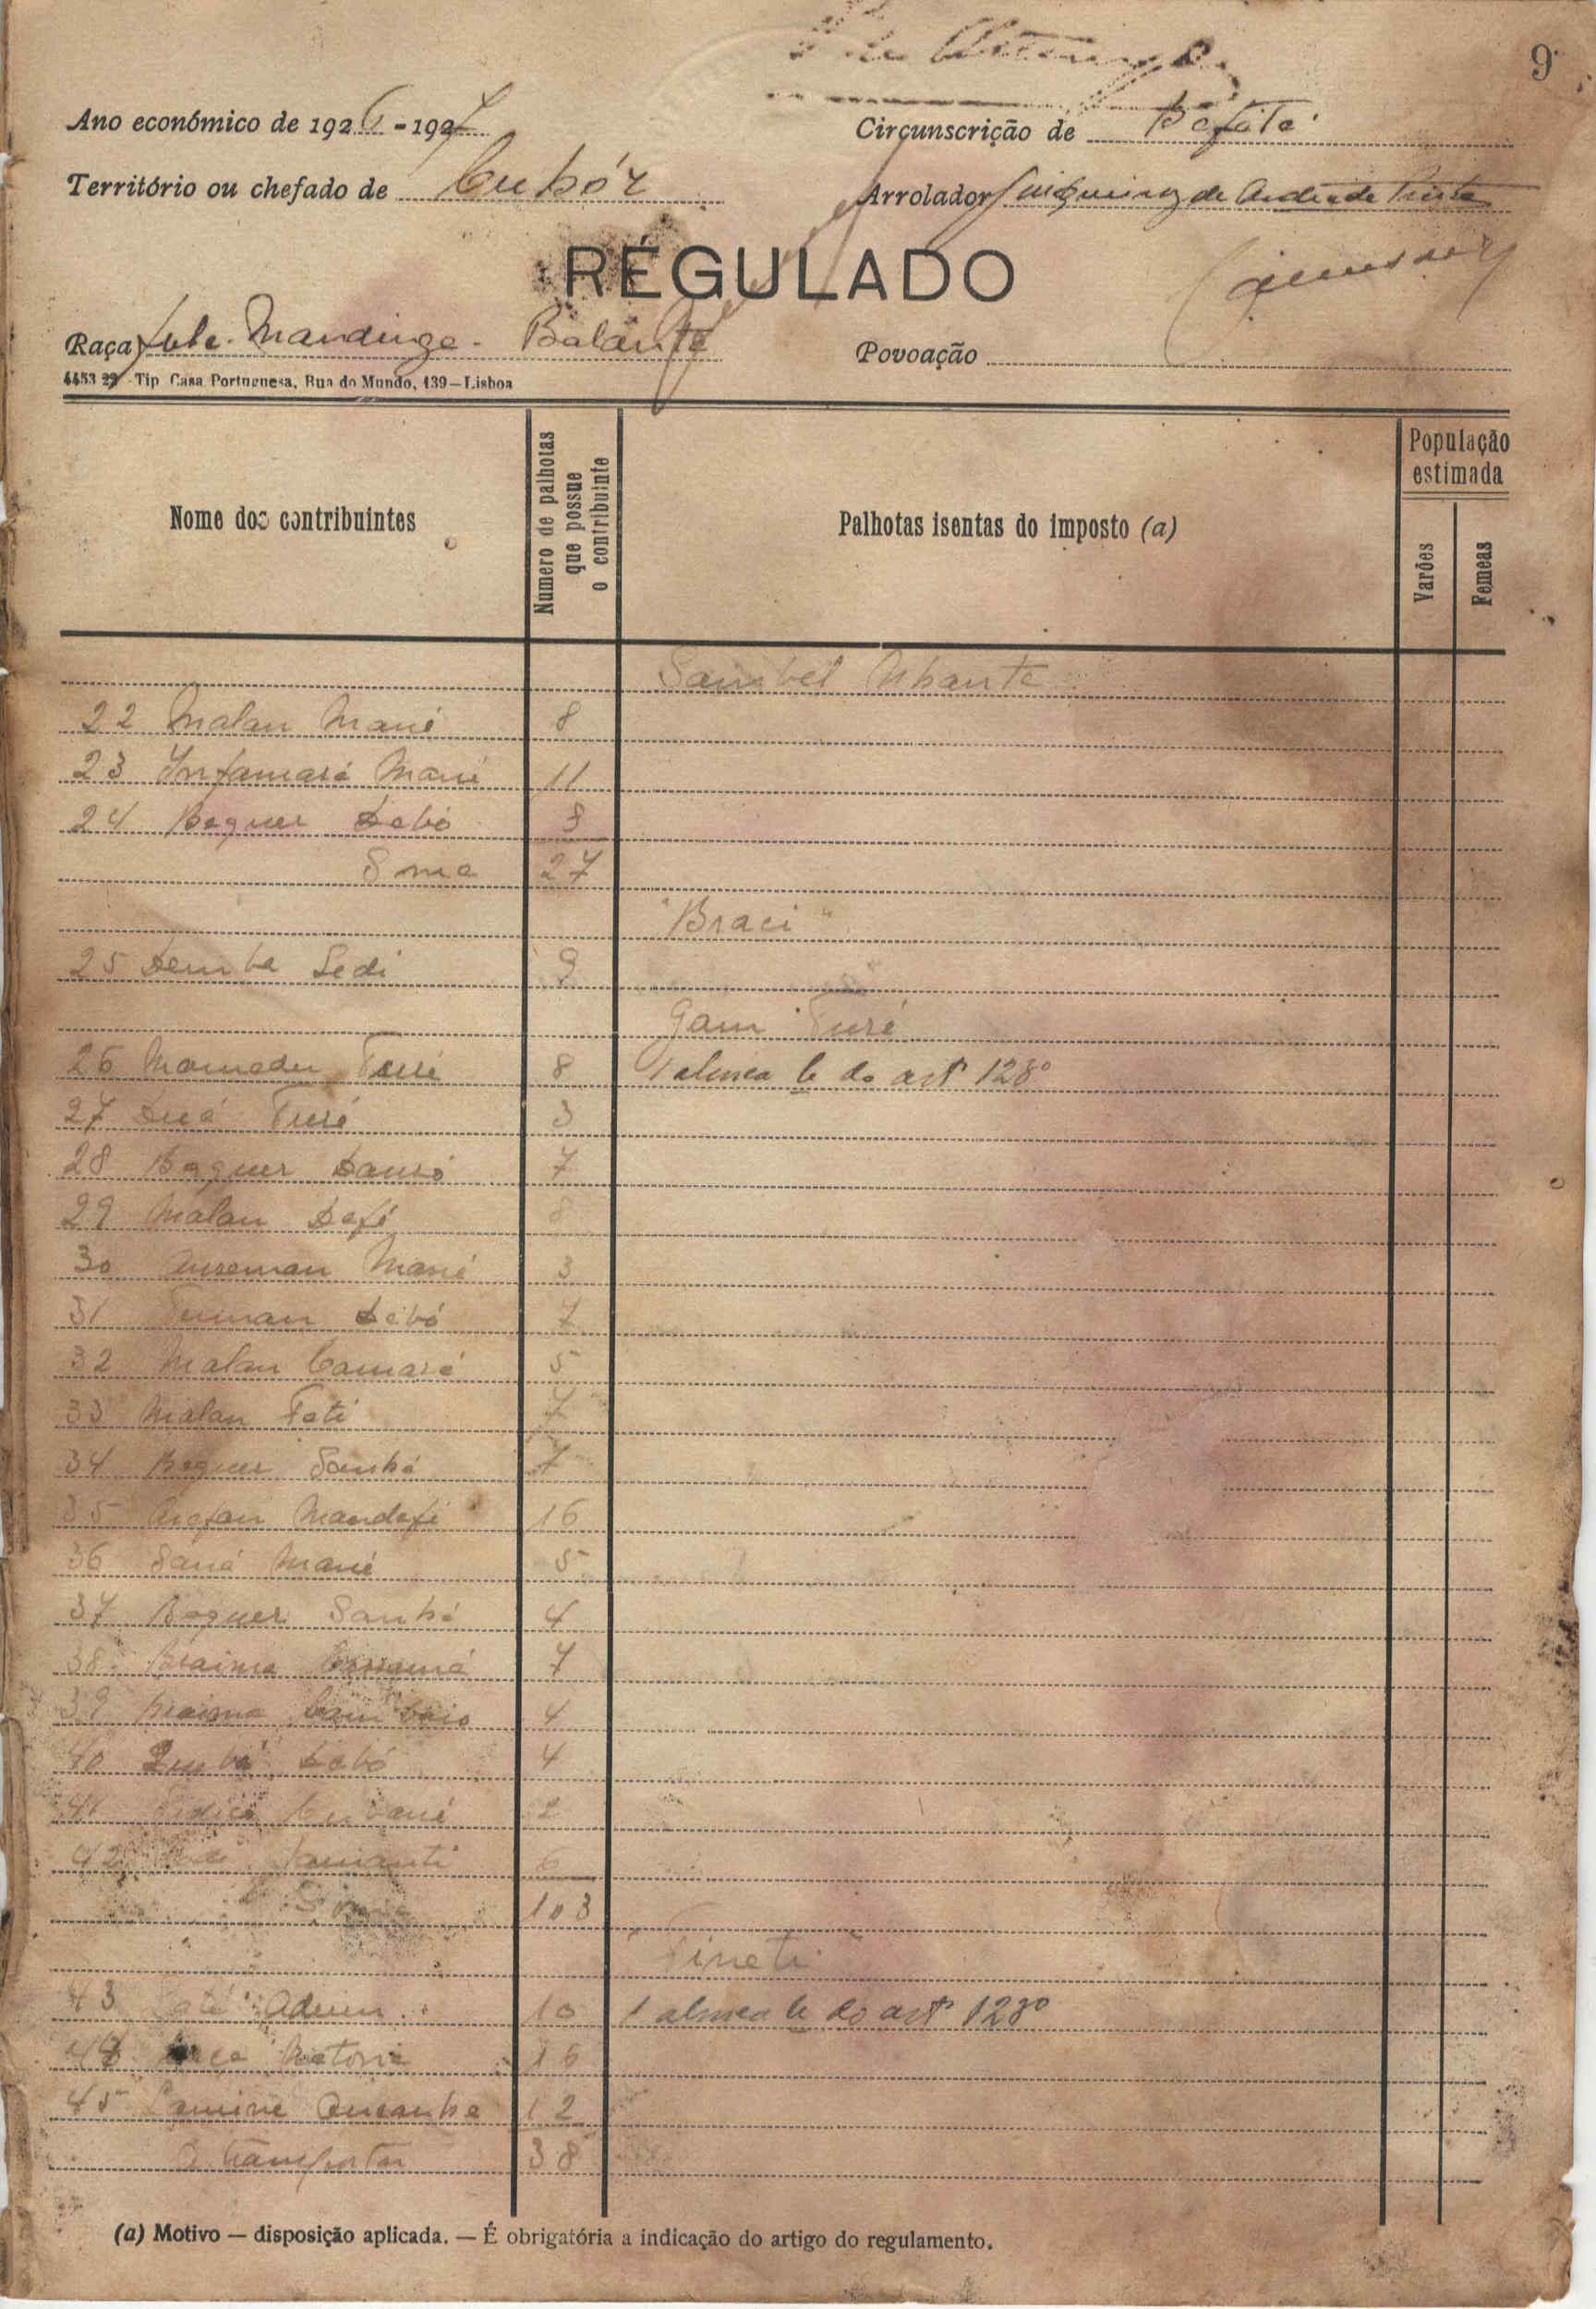 9
Ano económico de 1926-1927
Circunscrição de Bafatá
Território ou chefado de Cubór
Arrolador de Andrade
RÉGULADO
Raça Fula. Mandinga. Balanta
Povoação
4453 22 - Tip Casa Portuguesa, Rua do Mundo, 139—Lisboa
Nome dos contribuintes
Numero de palhotas que possue o contribuinte
Palhotas isentas do imposto (a)
População estimada
Varões
Femeas
Sambel Nhante
22 Malan Mané 8
23 Infamará Mané 11
24 Baquer Debó 8
Soma 27
"Braci"
25 Demba Sedi 9
Gam Turé
26 Mamadu Turé 8 1 alinea b do artº 128º
27 Turé 3
28 Baquer Dansó 7
29 Malan Dafé 8
30 Anseman Mané 3
31 Debó 7
32 Malan Camará 5
33 Malan Fati 7
34 Baquer Sanhá 7
35 Arefan Mandafé 16
36 Saná Mané 5
37 Baquer Sanhá 4
38 Braima 7
39 Braima Cambaio 4
40 Debó 4
41 2
42 6
Soma 103
Fineti
43 10 1 alinea b do artº 128º
44 16
45 Lamine 12
A transportar 38
(a) Motivo — disposição aplicada. — É obrigatória a indicação do artigo do regulamento.